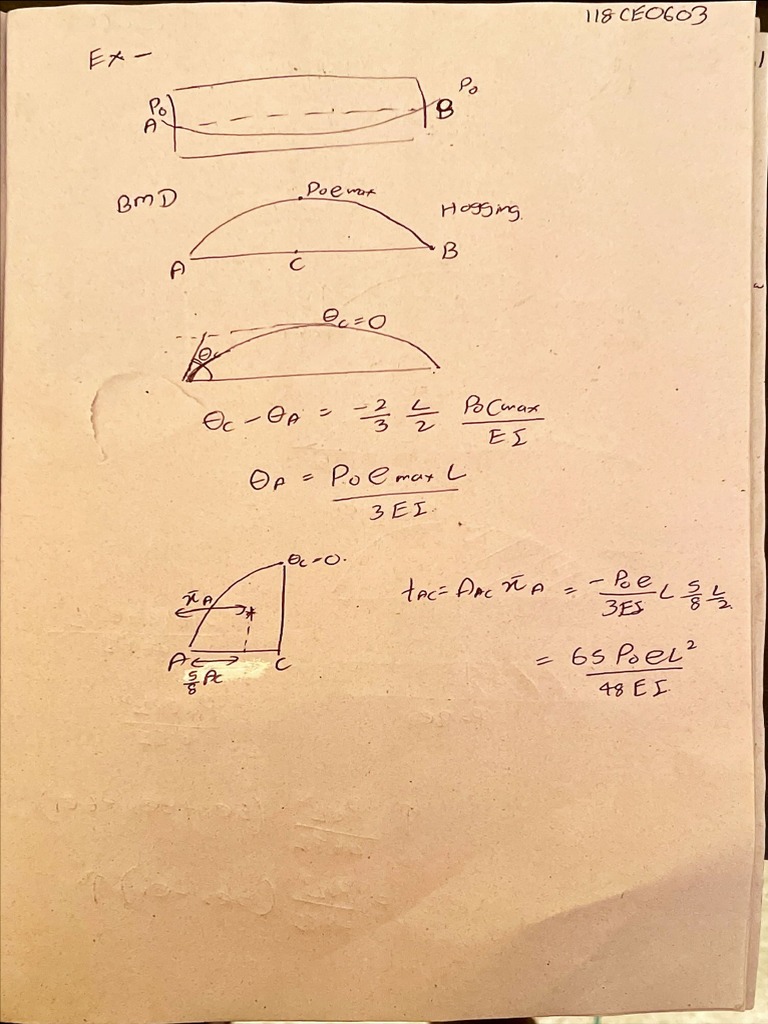 118CE0603
Ex -
P₀ P₀
A B
BMD P₀emax Hogging
A C B
θc = 0
θc
θc - θA = -2/3 L/2 P₀emax/EI
θA = P₀ emax L / 3EI
θc = 0.
x̄A
tAC = AAC x̄A = -P₀e/3EI L 5/8 L/2
A C
5/8 AC
= 65 P₀eL² / 48EI